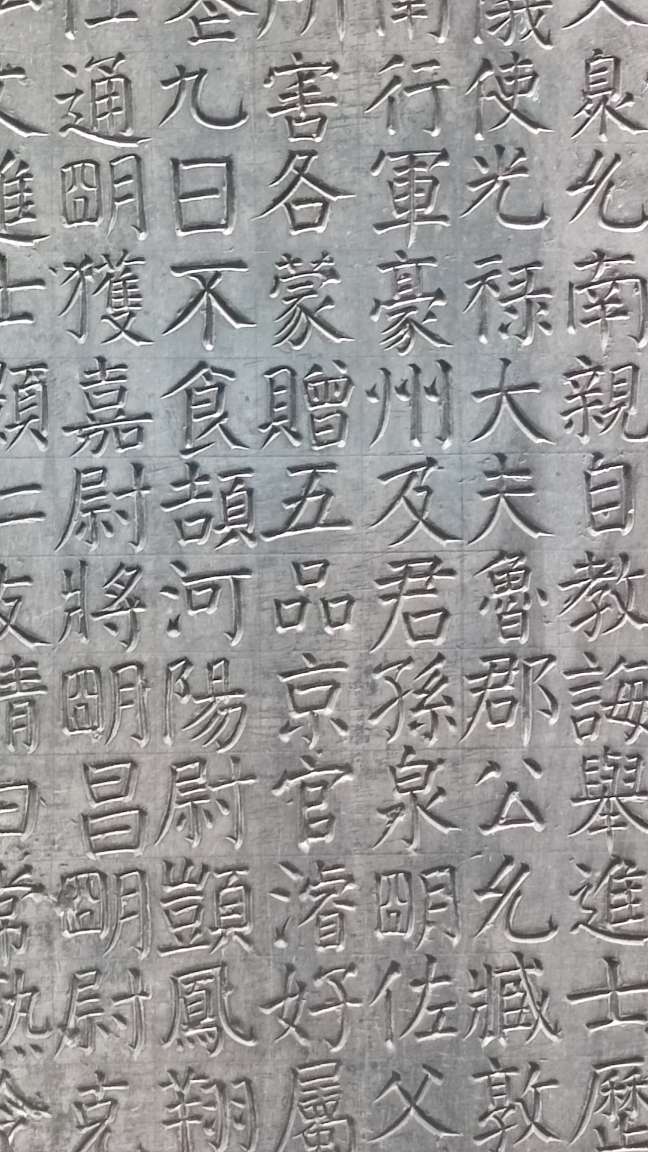 臮允南親自教誨舉進士歷
儀使光祿大夫魯郡公允臧敦
南行軍豪州及君孫泉明佐父
所害各蒙贈五品京官濬好屬
九日不食頡河陽尉顗鳳翔
通明獲嘉尉將明昌明尉克
文進士仁友清白常熟令